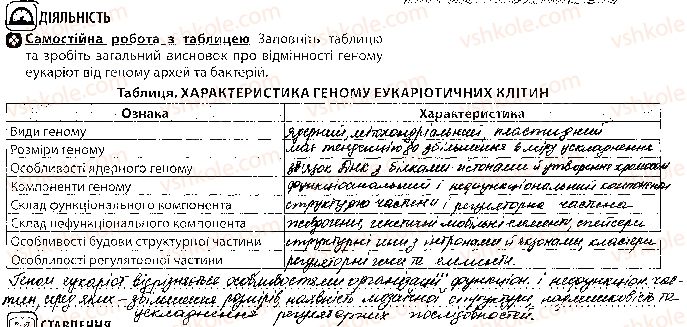 ДІЯЛЬНІСТЬ
Самостійна робота з таблицею Заповніть таблицю
та зробіть загальний висновок про відмінності геному
еукаріот від геному архей та бактерій.
Таблиця. ХАРАКТЕРИСТИКА ГЕНОМУ ЕУКАРІОТИЧНИХ КЛІТИН
Ознака Характеристика
Види геному ядерний, мітохондріальний, пластидний
Розміри геному має тенденцію до збільшення в міру ускладнення
Особливості ядерного геному зв'язок ДНК з білками гістонами й утворення хромосом
Компоненти геному функціональний і нефункціональний компоненти
Склад функціонального компонента структурна частина і регуляторна частина
Склад нефункціонального компонента псевдогени, генетичні мобільні елементи, спейсери
Особливості будови структурної частини структурні гени з інтронами й екзонами, кластери
Особливості регуляторної частини регуляторні гени та елементи.
Геном еукаріот відрізняється особливостями організації функціон. і нефункціон. час-
тин, серед яких - збільшення розмірів, наявність мозаїчної структури, надлишковість та
ускладнення регуляторних послідовностей.
СТАВЛЕННЯ